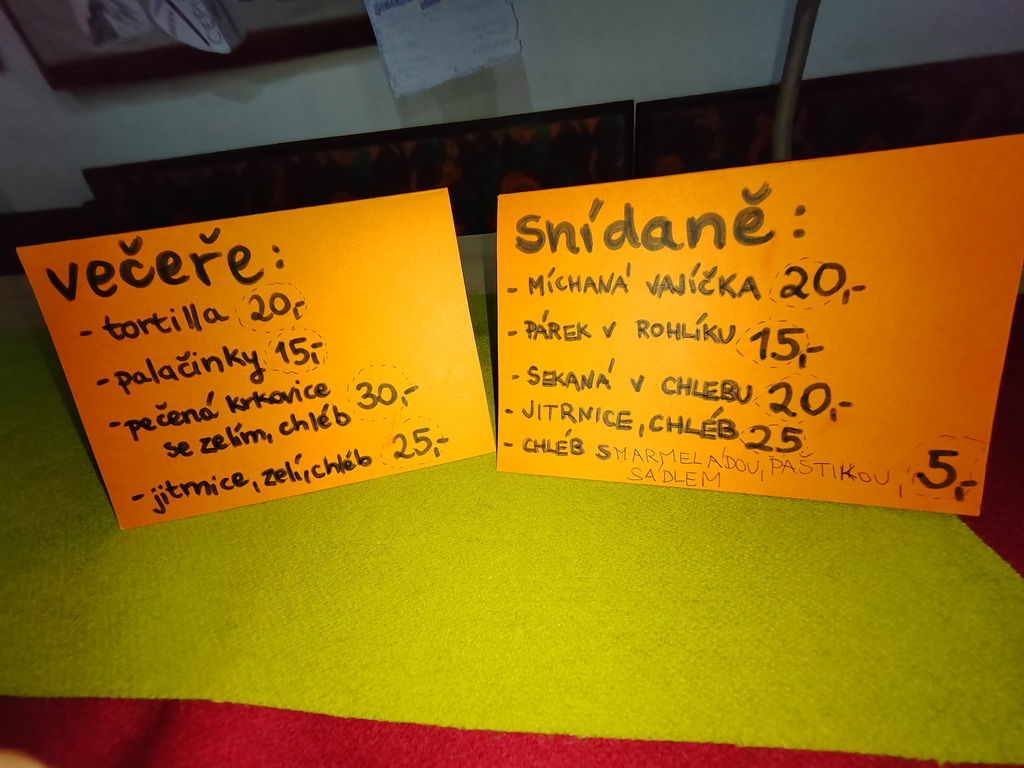 večeře:
- tortilla 20,-
- palačinky 15,-
- pečená krkovice 30,-
se zelím, chléb
- jitrnice, zelí, chléb 25,-
snídaně:
- MÍCHANÁ VAJÍČKA 20,-
- PÁREK V ROHLÍKU 15,-
- SEKANÁ V CHLEBU 20,-
- JITRNICE, CHLÉB 25
- CHLÉB S MARMELÁDOU, PAŠTIKOU, 5,-
SÁDLEM